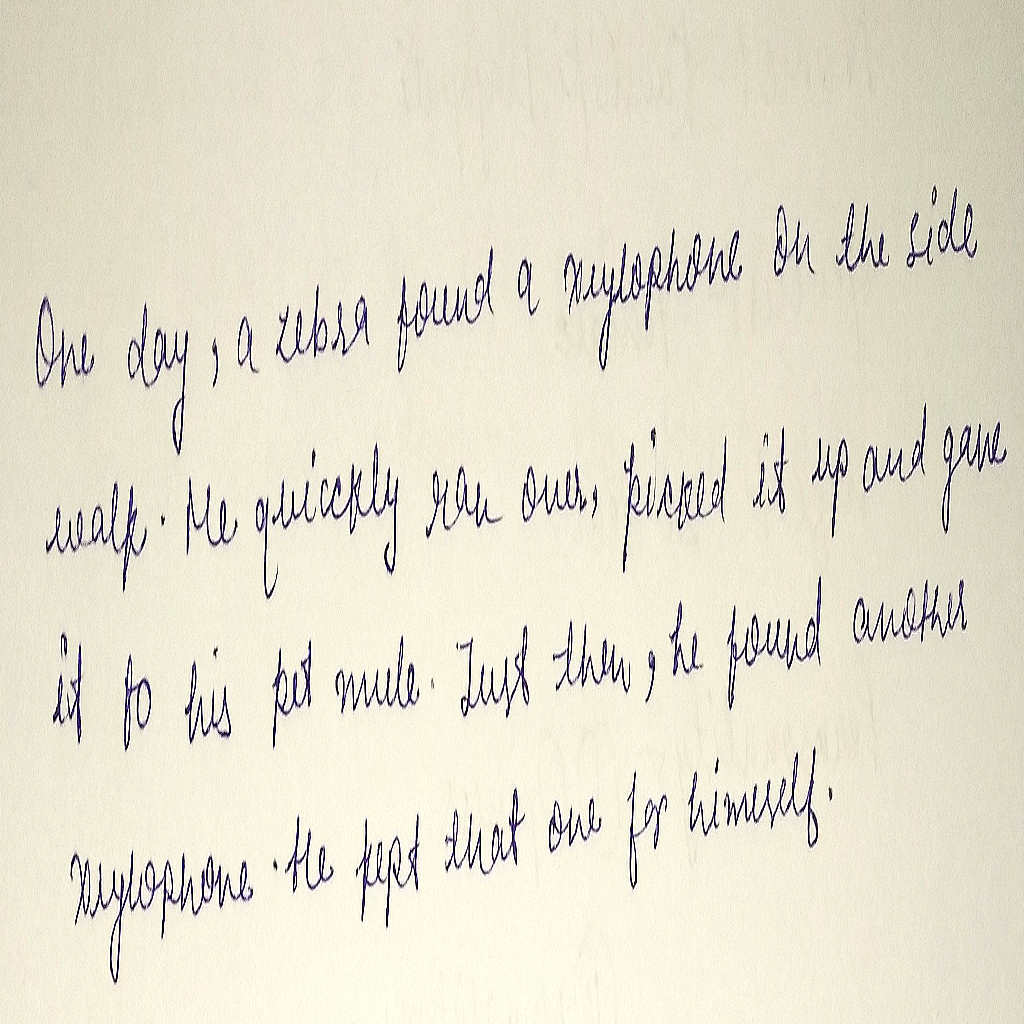 One day, a zebra found a xylophone on the side
walk. He quickly ran over, picked it up and gave
it to his pet mule. Just then, he found another
xylophone. He kept that one for himself.